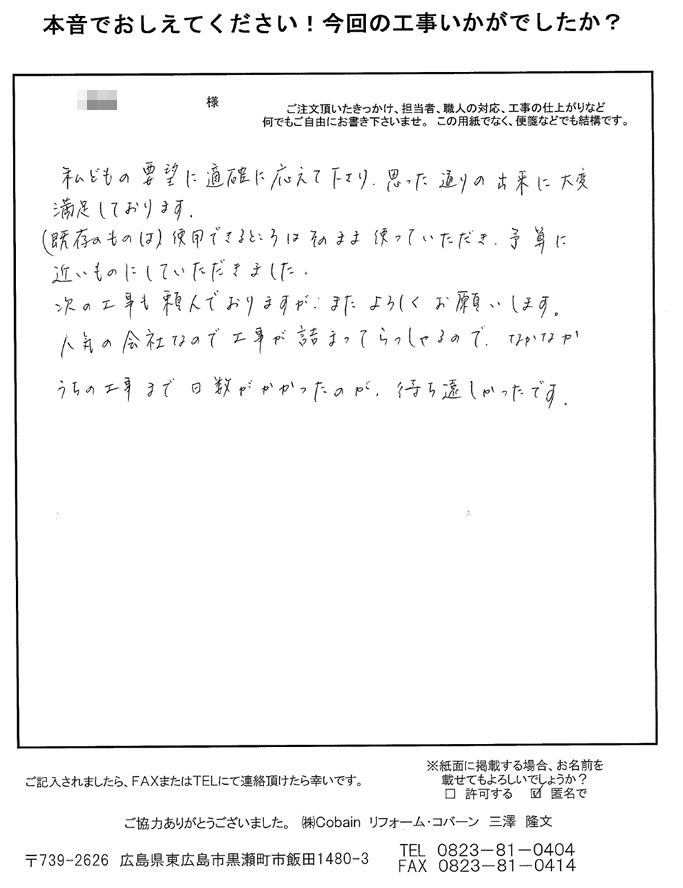 本音でおしえてください！今回の工事いかがでしたか？
様
ご注文頂いたきっかけ、担当者、職人の対応、工事の仕上がりなど
何でもご自由にお書き下さいませ。この用紙でなく、便箋などでも結構です。
私どもの要望に適確に応えて下さり、思った通りの出来に大変
満足しております。
(既存のものは)使用できるところはそのまま使っていただき、予算に
近いものにしていただきました。
次の工事も頼んでおりますが、またよろしくお願いします。
人気の会社なので工事が詰まってらっしゃるので、なかなか
うちの工事まで日数がかかったのが、待ち遠しかったです。
ご記入されましたら、FAXまたはTELにて連絡頂けたら幸いです。
※紙面に掲載する場合、お名前を
載せてもよろしいでしょうか？
□ 許可する ☑ 匿名で
ご協力ありがとうございました。 ㈱Cobain リフォーム・コバーン 三澤 隆文
〒739-2626 広島県東広島市黒瀬町市飯田1480-3
TEL 0823-81-0404
FAX 0823-81-0414